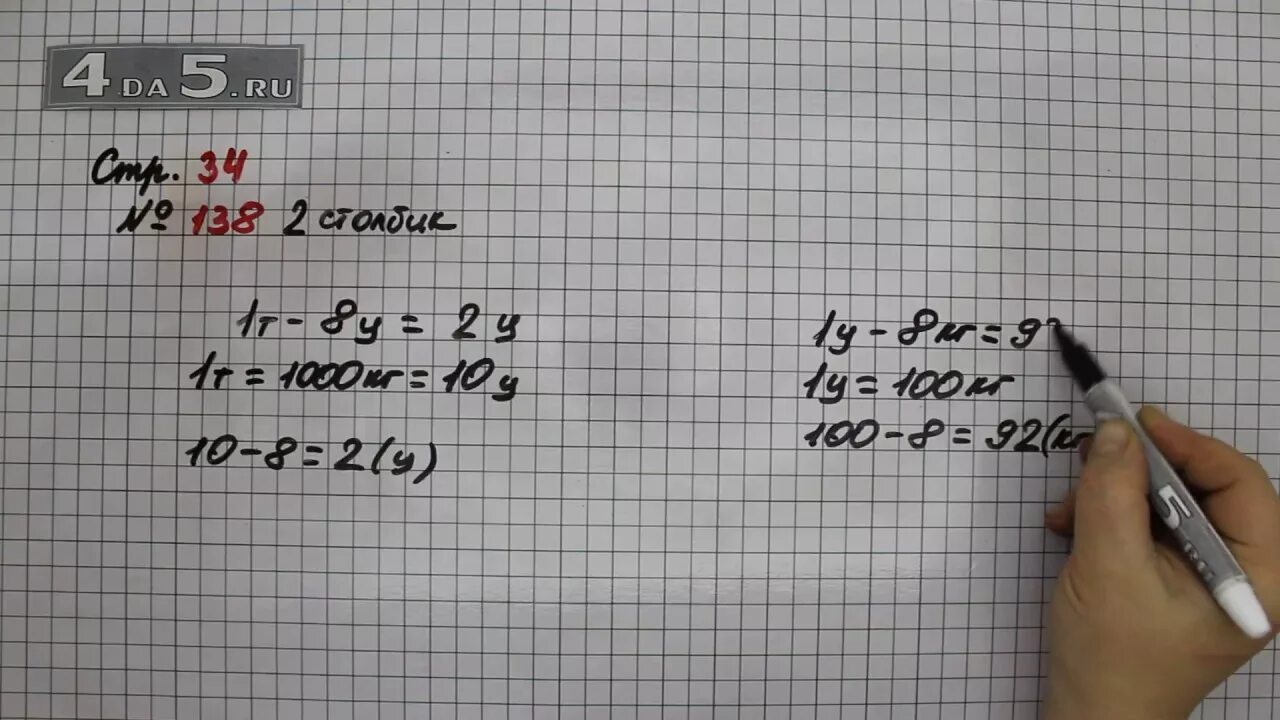 4DA5.RU
Стр. 34
№ 138 2 столбик
1т - 8ц = 2 ц
1т = 1000кг = 10ц
10 - 8 = 2 (ц)
1ц - 8кг = 9
1ц = 100кг
100 - 8 = 92(кг
5.RU